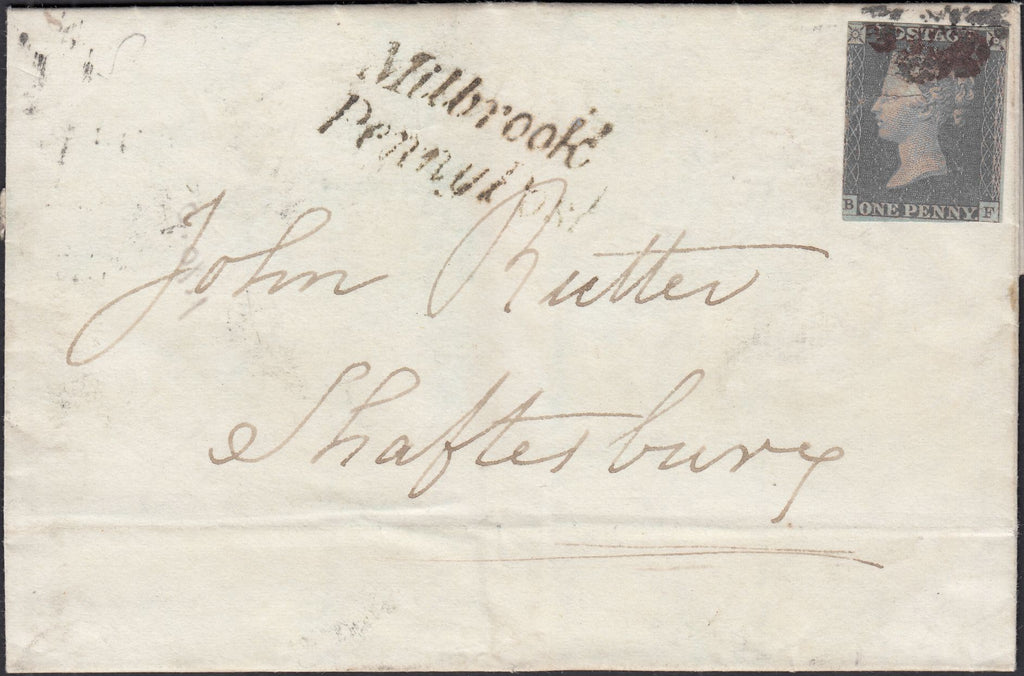 POSTAGE
Milbrook
Penny Post
John Rutter
B ONE PENNY F
Shaftesbury